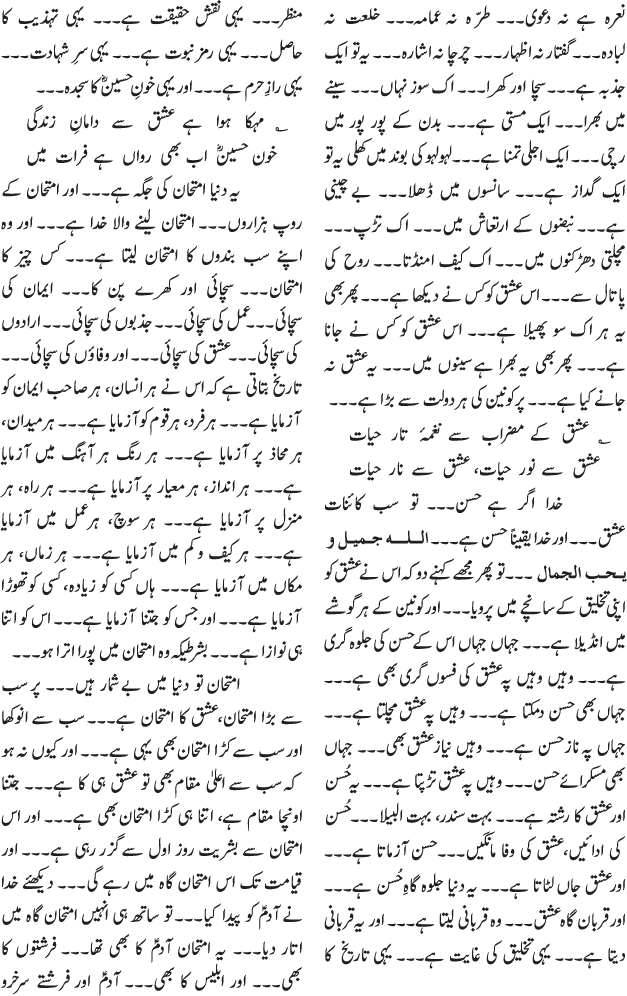 نعرہ ہے نہ دعویٰ۔۔۔ طرّہ نہ عمامہ۔۔۔ خلعت نہ
لبادہ۔۔۔ گفتار نہ اظہار۔۔۔ چرچا نہ اشارہ۔۔۔ یہ تو ایک
جذبہ ہے۔۔۔ سچا اور کھرا۔۔۔ اک سوز نہاں۔۔۔ سینے
میں بھرا۔۔۔ ایک مستی ہے۔۔۔ بدن کے پور پور میں
رچی۔۔۔ ایک اجلی تمنا ہے۔۔۔ لہولہو کی بوند میں کھلی یہ تو
ایک گداز ہے۔۔۔ سانسوں میں ڈھلا۔۔۔ بے چینی
ہے۔۔۔ نبضوں کے ارتعاش میں۔۔۔ اک تڑپ۔۔۔
مچلتی دھڑکنوں میں۔۔۔ اک کیف امنڈتا۔۔۔ روح کی
پاتال سے۔۔۔ اس عشق کو کس نے دیکھا ہے۔۔۔ پھر بھی
یہ ہر اک سو پھیلا ہے۔۔۔ اس عشق کو کس نے جانا
ہے۔۔۔ پھر بھی یہ بھرا ہے سینوں میں۔۔۔ یہ عشق نہ
جانے کیا ہے۔۔۔ پر کونین کی ہر دولت سے بڑا ہے۔۔۔
؎ عشق کے مضراب سے نغمۂ تار حیات
عشق سے نور حیات، عشق سے نار حیات
خدا اگر ہے حسن۔۔۔ تو سب کائنات
عشق۔۔۔ اور خدا یقیناً حسن ہے۔۔۔ اللہ جمیل و
یحب الجمال ۔۔۔ تو پھر مجھے کہنے دو کہ اس نے عشق کو
اپنی تخلیق کے سانچے میں پرویا۔۔۔ اور کونین کے ہر گوشے
میں انڈیلا ہے۔۔۔ جہاں جہاں اس کے حسن کی جلوہ گری
ہے۔۔۔ وہیں وہیں پہ عشق کی فسوں گری بھی ہے۔۔۔
جہاں بھی حسن دمکتا ہے۔۔۔ وہیں پہ عشق مچلتا ہے۔۔۔
جہاں پہ ناز حسن ہے۔۔۔ وہیں نیاز عشق بھی۔۔۔ جہاں
بھی مسکرائے حسن۔۔۔ وہیں پہ عشق تڑپتا ہے۔۔۔ یہ حُسن
اور عشق کا رشتہ ہے۔۔۔ بہت سندر، بہت البیلا۔۔۔ حُسن
کی ادائیں، عشق کی وفا مانگیں۔۔۔ حسن آزماتا ہے۔۔۔
اور عشق جاں لٹاتا ہے۔۔۔ یہ دنیا جلوہ گاہِ حُسن ہے۔۔۔
اور قربان گاہ عشق۔۔۔ وہ قربانی لیتا ہے۔۔۔ اور یہ قربانی
دیتا ہے۔۔۔ یہی تخلیق کی غایت ہے۔۔۔ یہی تاریخ کا
منظر۔۔۔ یہی نقش حقیقت ہے۔۔۔ یہی تہذیب کا
حاصل۔۔۔ یہی رمز نبوت ہے۔۔۔ یہی سرِ شہادت۔۔۔
یہی رازِ حرم ہے۔۔۔ اور یہی خونِ حسینؓ کا سجدہ۔۔۔
؎ مہکا ہوا ہے عشق سے دامانِ زندگی
خون حسینؓ اب بھی رواں ہے فرات میں
یہ دنیا امتحان کی جگہ ہے۔۔۔ اور امتحان کے
روپ ہزاروں۔۔۔ امتحان لینے والا خدا ہے۔۔۔ اور وہ
اپنے سب بندوں کا امتحان لیتا ہے۔۔۔ کس چیز کا
امتحان۔۔۔ سچائی اور کھرے پن کا۔۔۔ ایمان کی
سچائی۔۔۔ عمل کی سچائی۔۔۔ جذبوں کی سچائی۔۔۔ ارادوں
کی سچائی۔۔۔ عشق کی سچائی۔۔۔ اور وفاؤں کی سچائی۔۔۔
تاریخ بتاتی ہے کہ اس نے ہر انسان، ہر صاحب ایمان کو
آزمایا ہے۔۔۔ ہر فرد، ہر قوم کو آزمایا ہے۔۔۔ ہر میدان،
ہر محاذ پر آزمایا ہے۔۔۔ ہر رنگ ہر آہنگ میں آزمایا
ہے۔۔۔ ہر انداز، ہر معیار پر آزمایا ہے۔۔۔ ہر راہ، ہر
منزل پر آزمایا ہے۔۔۔ ہر سوچ، ہر عمل میں آزمایا
ہے۔۔۔ ہر کیف و کم میں آزمایا ہے۔۔۔ ہر زماں، ہر
مکاں میں آزمایا ہے۔۔۔ ہاں کسی کو زیادہ، کسی کو تھوڑا
آزمایا ہے۔۔۔ اور جس کو جتنا آزمایا ہے۔۔۔ اس کو اتنا
ہی نوازا ہے۔۔۔ بشرطیکہ وہ امتحان میں پورا اترا ہو۔۔۔
امتحان تو دنیا میں بے شمار ہیں۔۔۔ پر سب
سے بڑا امتحان، عشق کا امتحان ہے۔۔۔ سب سے انوکھا
اور سب سے کڑا امتحان بھی یہی ہے۔۔۔ اور کیوں نہ ہو
کہ سب سے اعلیٰ مقام بھی تو عشق ہی کا ہے۔۔۔ جتنا
اونچا مقام ہے، اتنا ہی کڑا امتحان بھی ہے۔۔۔ اور اس
امتحان سے بشریت روز اول سے گزر رہی ہے۔۔۔ اور
قیامت تک اس امتحان گاہ میں رہے گی۔۔۔ دیکھئے خدا
نے آدمؑ کو پیدا کیا۔۔۔ تو ساتھ ہی انہیں امتحان گاہ میں
اتار دیا۔۔۔ یہ امتحان آدمؑ کا بھی تھا۔۔۔ فرشتوں کا
بھی۔۔۔ اور ابلیس کا بھی۔۔۔ آدمؑ اور فرشتے سرخرو